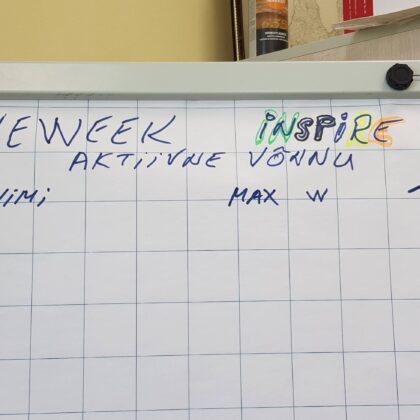 EWEEK INSPIRE
AKTIIVNE VÕNNU
NIMI MAX W